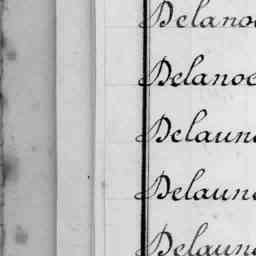 Delano
Delano
Delaun
Delaun
Delaun